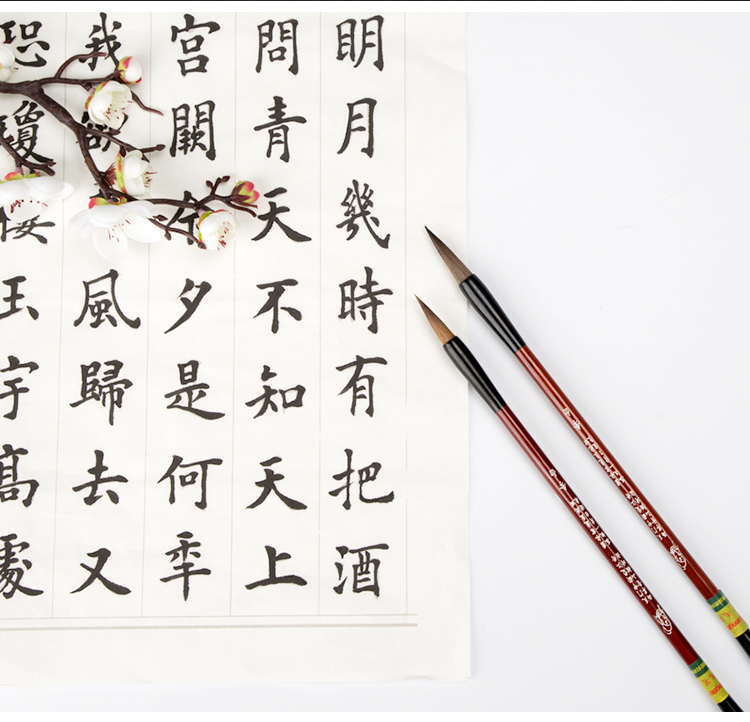 明月幾時有把酒
問青天不知天上
宮闕今夕是何年
我欲風歸去又
恐瓊樓玉宇高處